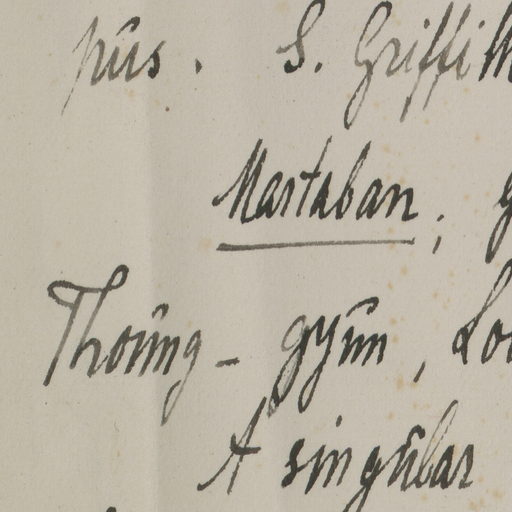 pus. S. Griffith
Martaban; G
Thoung-gyun, Lo
A singular